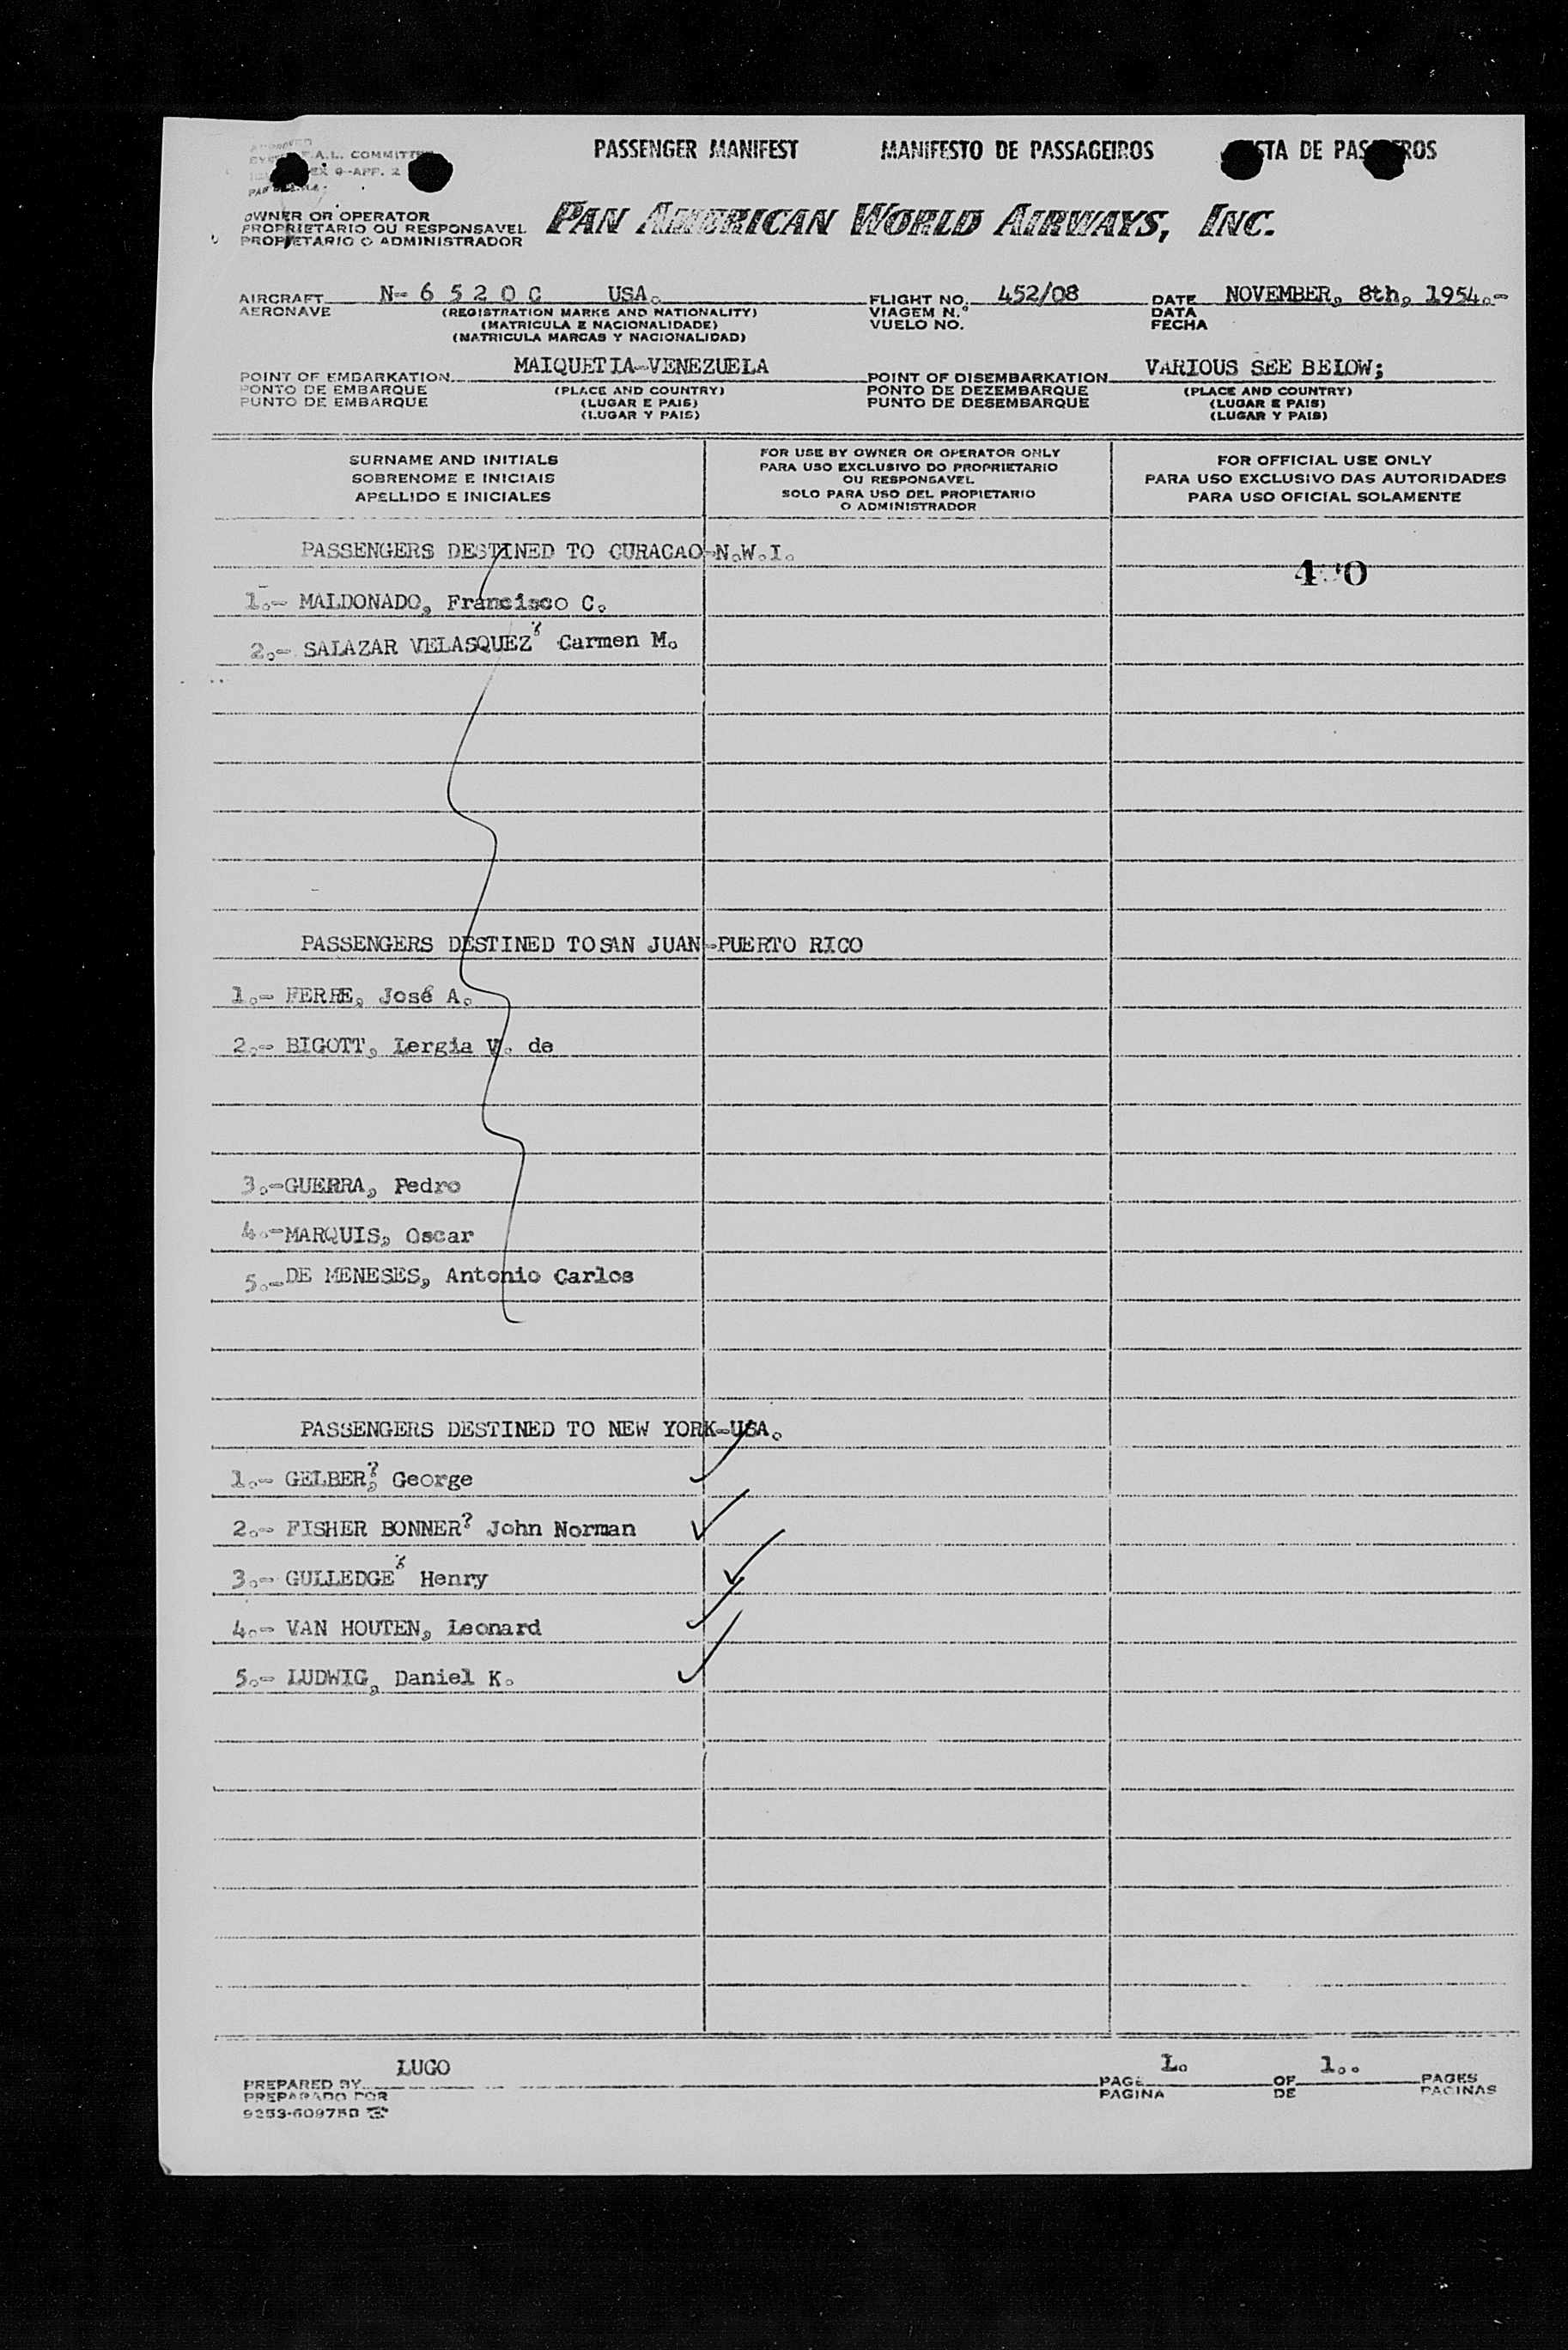 PASSENGER MANIFEST MANIFESTO DE PASSAGEIROS DE
A.L. COMMITTEE
APP. 2
OWNER OR OPERATOR
PROPRIETARIO OU RESPONSAVEL
PROPIETARIO O ADMINISTRADOR
PAN AMERICAN WORLD AIRWAYS, INC.
AIRCRAFT N- 6 5 2 0 C USA. FLIGHT NO. 452/08 DATE NOVEMBER, 8th, 1954.-
AERONAVE (REGISTRATION MARKS AND NATIONALITY) VIAGEM N.º DATA
(MATRICULA E NACIONALIDADE) VUELO NO. FECHA
(MATRICULA MARCAS Y NACIONALIDAD)
POINT OF EMBARKATION MAIQUETIA-VENEZUELA POINT OF DISEMBARKATION VARIOUS SEE BELOW;
PONTO DE EMBARQUE (PLACE AND COUNTRY) PONTO DE DEZEMBARQUE (PLACE AND COUNTRY)
PUNTO DE EMBARQUE (LUGAR E PAIS) PUNTO DE DESEMBARQUE (LUGAR E PAIS)
(LUGAR Y PAIS) (LUGAR Y PAIS)
SURNAME AND INITIALS
SOBRENOME E INICIAIS
APELLIDO E INICIALES
FOR USE BY OWNER OR OPERATOR ONLY
PARA USO EXCLUSIVO DO PROPRIETARIO
OU RESPONSAVEL
SOLO PARA USO DEL PROPIETARIO
O ADMINISTRADOR
FOR OFFICIAL USE ONLY
PARA USO EXCLUSIVO DAS AUTORIDADES
PARA USO OFICIAL SOLAMENTE
PASSENGERS DESTINED TO CURACAO-N.W.I.
1.- MALDONADO, Francisco C.
2.- SALAZAR VELASQUEZ, Carmen M.
PASSENGERS DESTINED TO SAN JUAN-PUERTO RICO
1.- FERRE, José A.
2.- BIGOTT, Lergia V. de
3.-GUERRA, Pedro
4.-MARQUIS, Oscar
5.-DE MENESES, Antonio Carlos
PASSENGERS DESTINED TO NEW YORK-USA.
1.- GELBER, George
2.- FISHER BONNER, John Norman
3.- GULLEDGE, Henry
4.- VAN HOUTEN, Leonard
5.- LUDWIG, Daniel K.
PREPARED BY LUGO PAGE 1. OF 1.. PAGES
PREPARADO POR PAGINA DE PAGINAS